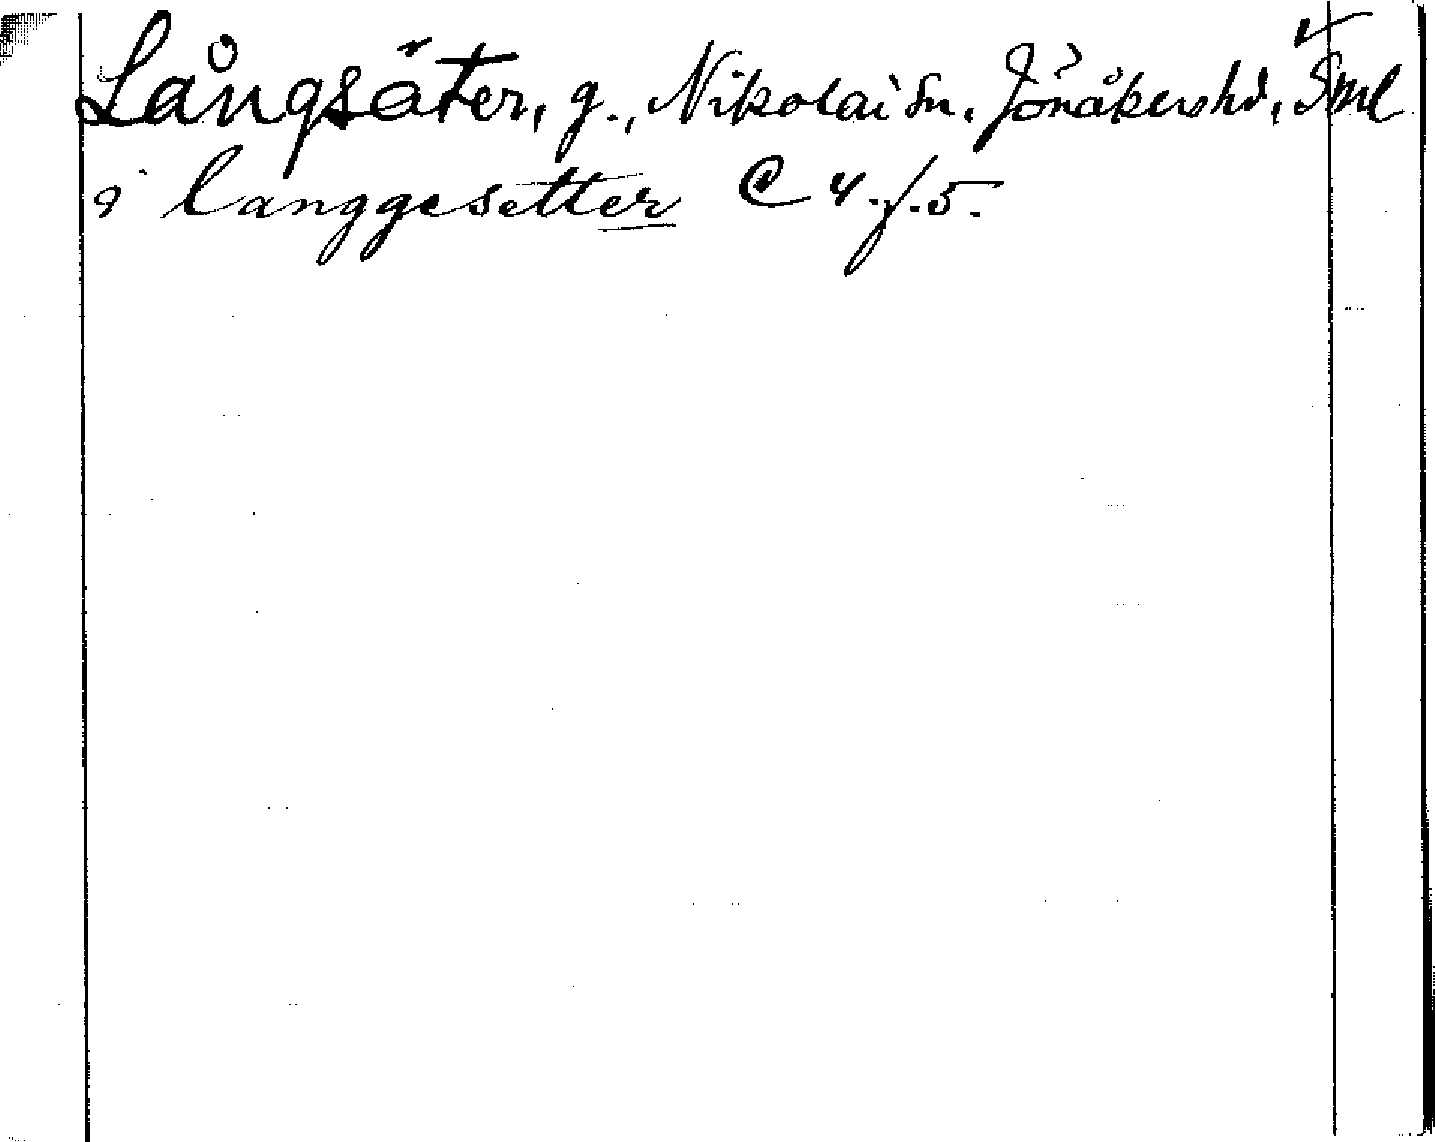 Långsäter, g., Nikolai sn. Jönåkers hd, Sml
i langgesetter C 4. f. 5.